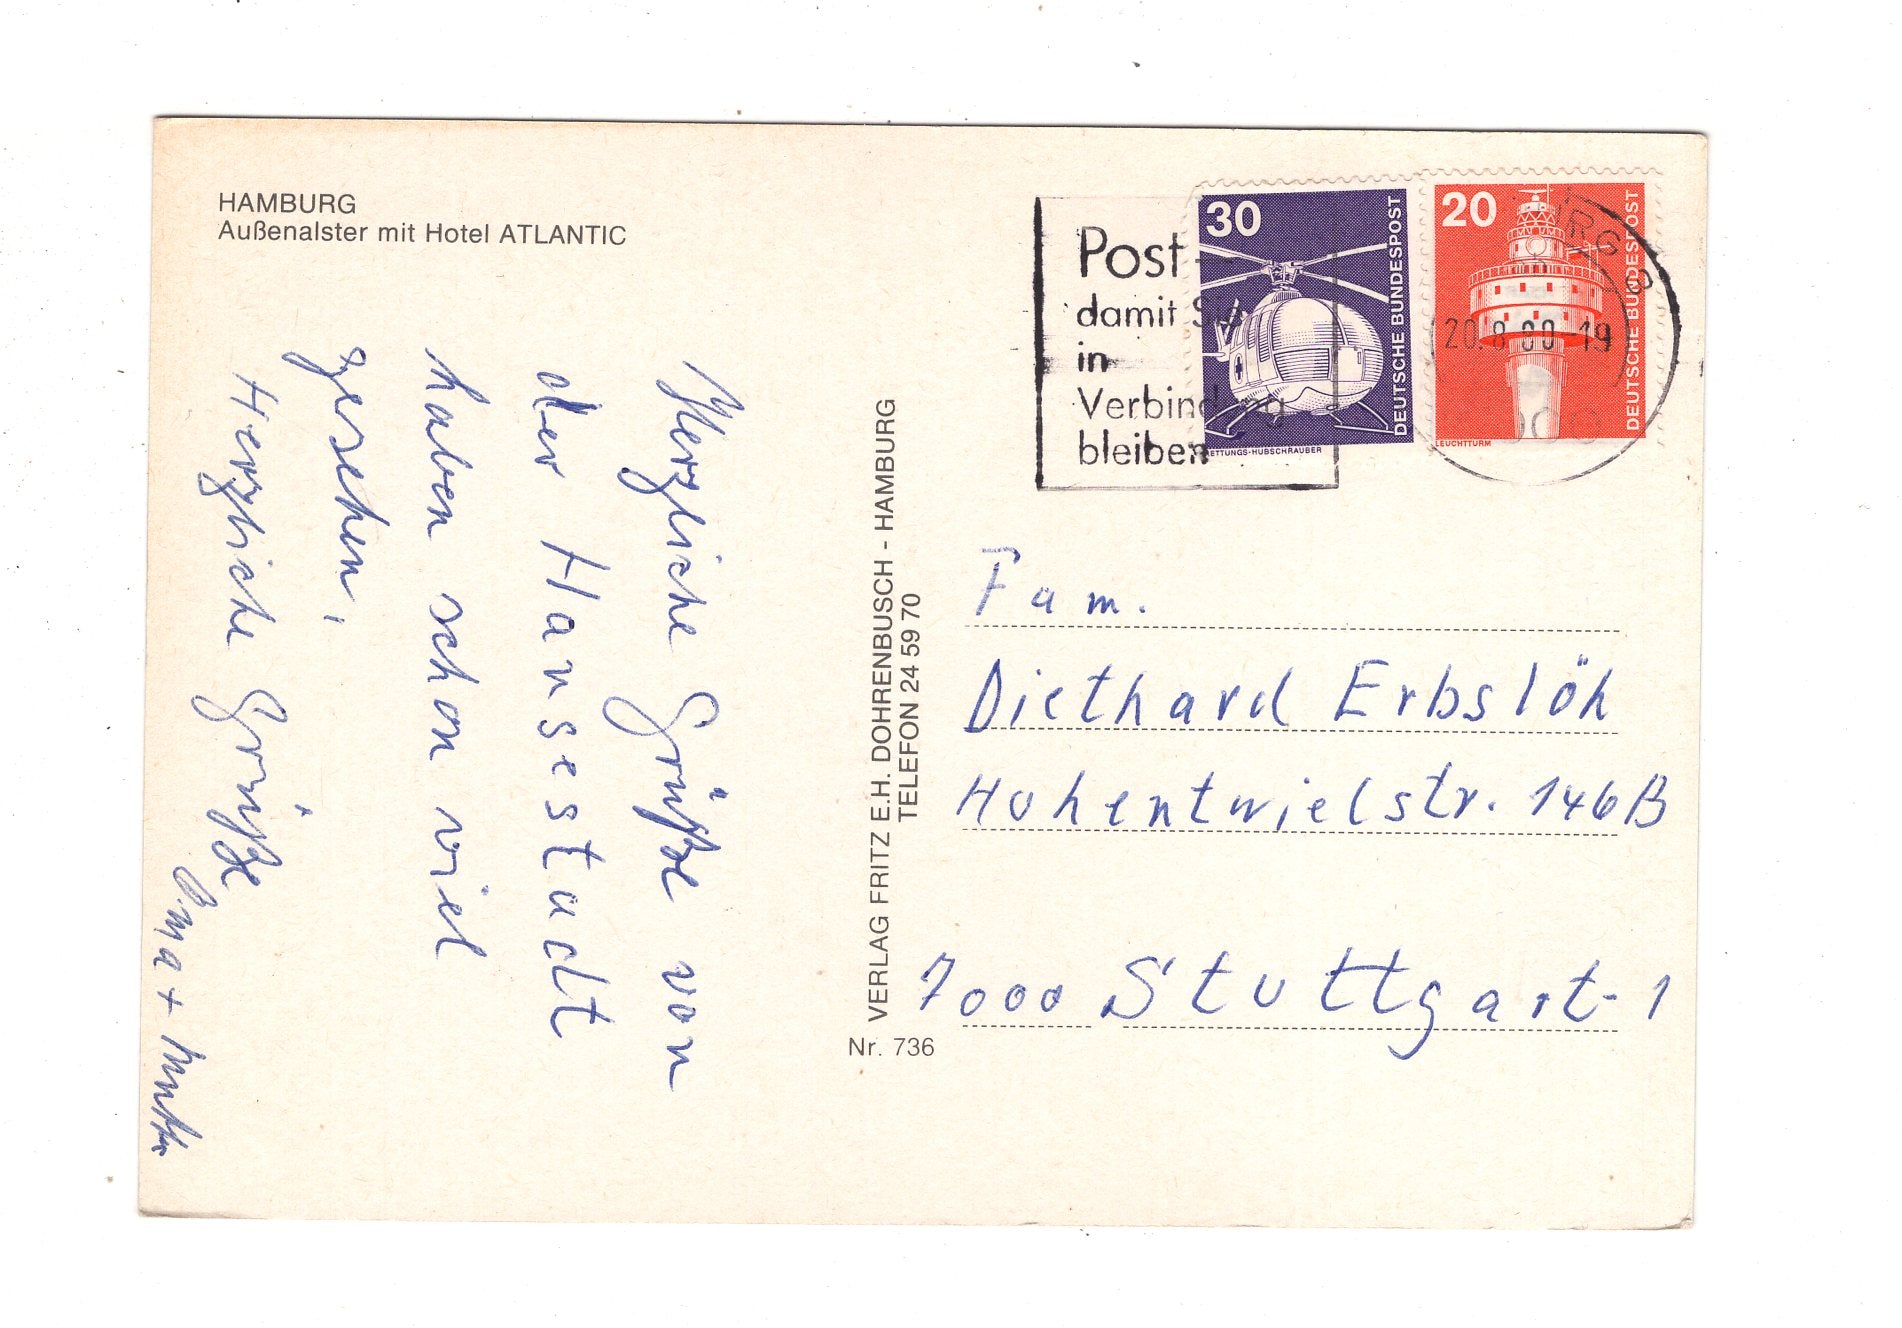 HAMBURG
Außenalster mit Hotel ATLANTIC
Herzliche Grüße von
der Hansestadt
haben schon viel
gesehen.
Herzliche Grüße
Oma + Mutter
VERLAG FRITZ E.H. DOHRENBUSCH - HAMBURG
TELEFON 24 59 70
Nr. 736
Post -
damit Sie
in
Verbindung
bleiben
30
DEUTSCHE BUNDESPOST
RETTUNGS-HUBSCHRAUBER
20
DEUTSCHE BUNDESPOST
LEUCHTTURM
20.8.80-19
Fam.
Diethard Erbslöh
Hohentwielstr. 146B
7000 Stuttgart-1